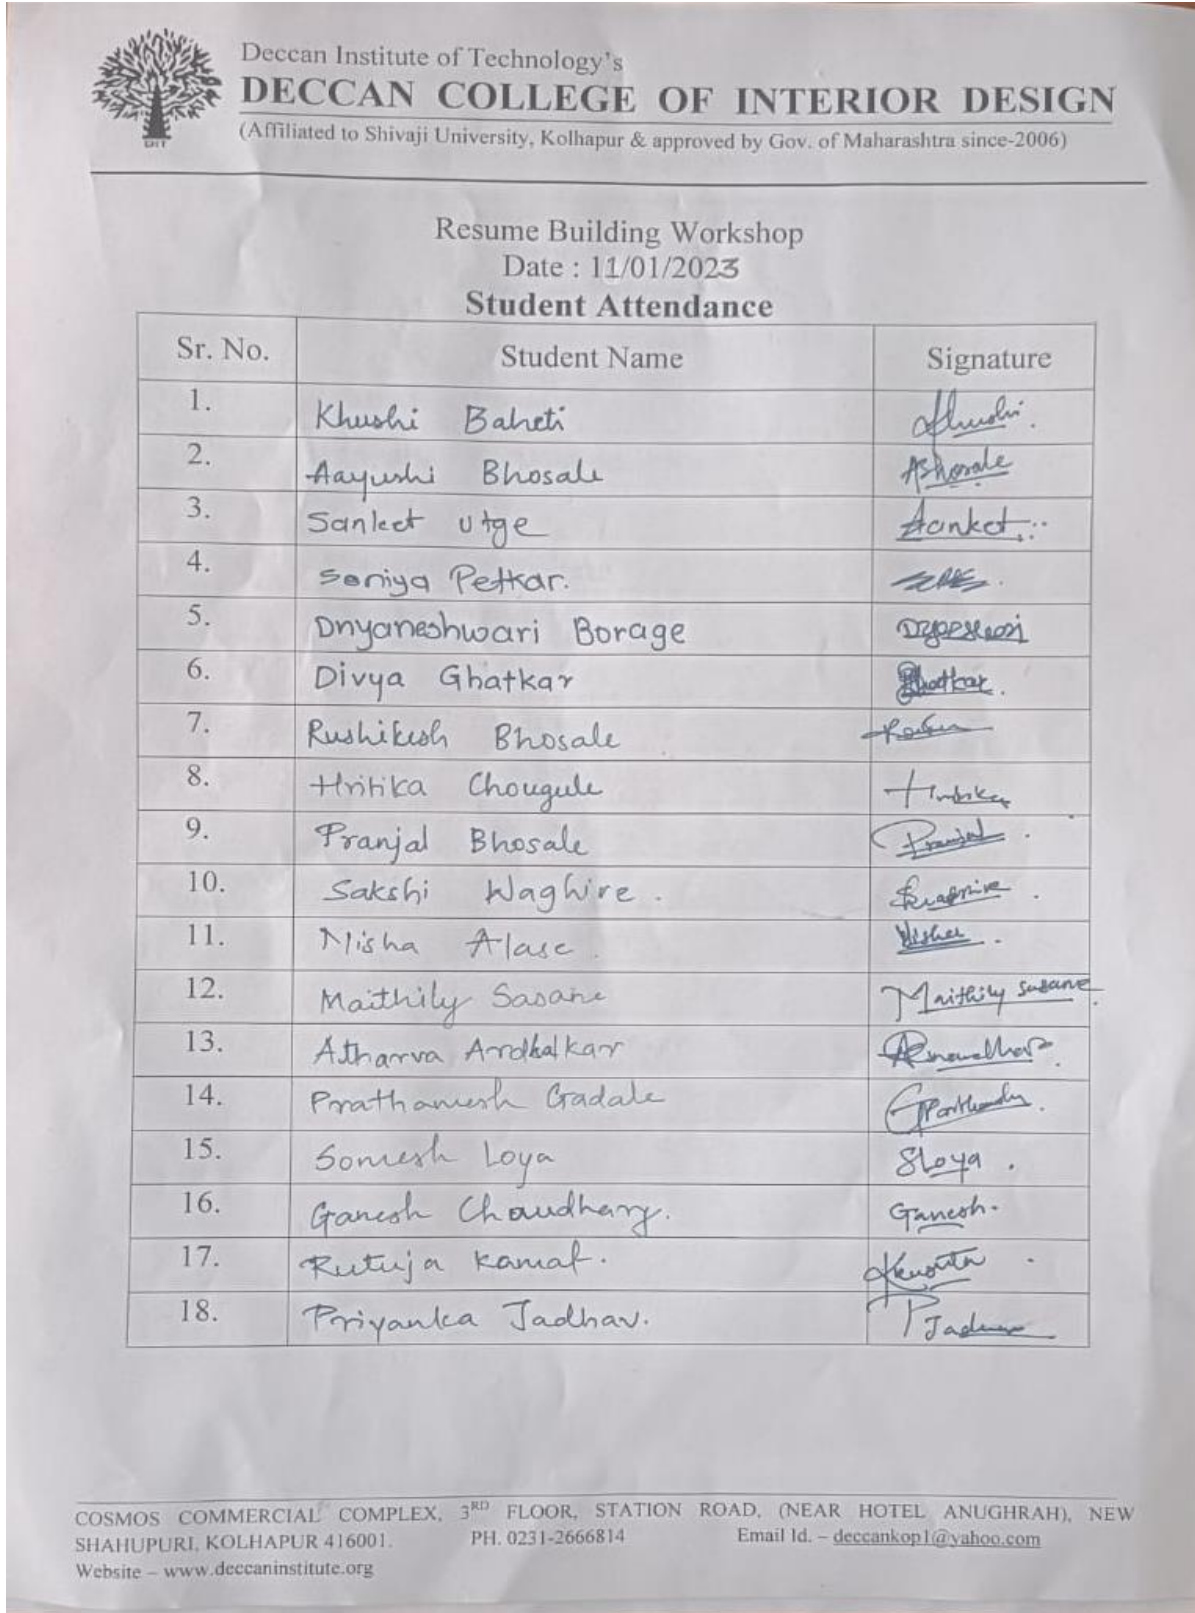 Deccan Institute of Technology's
DECCAN COLLEGE OF INTERIOR DESIGN
(Affiliated to Shivaji University, Kolhapur & approved by Gov. of Maharashtra since-2006)
Resume Building Workshop
Date : 11/01/2023
Student Attendance
Sr. No. Student Name Signature
1. Khushi Baheti
2. Aayushi Bhosale
3. Sanket Utge Sanket
4. Soniya Petkar.
5. Dnyaneshwari Borage
6. Divya Ghatkar Ghatkar.
7. Rushikesh Bhosale
8. Hritika Chougule Hritika
9. Pranjal Bhosale Pranjal
10. Sakshi Waghire.
11. Misha Alase
12. Maithily Sasane Maithily Sasane
13. Atharva
14. Prathamesh Gadale
15. Somesh Loya SLoya.
16. Ganesh Chaudhary. Ganesh.
17. Rutuja Kamat.
18. Priyanka Jadhav.
COSMOS COMMERCIAL COMPLEX, 3RD FLOOR, STATION ROAD, (NEAR HOTEL ANUGHRAH), NEW
SHAHUPURI, KOLHAPUR 416001. PH. 0231-2666814 Email Id. – deccankop1@yahoo.com
Website – www.deccaninstitute.org